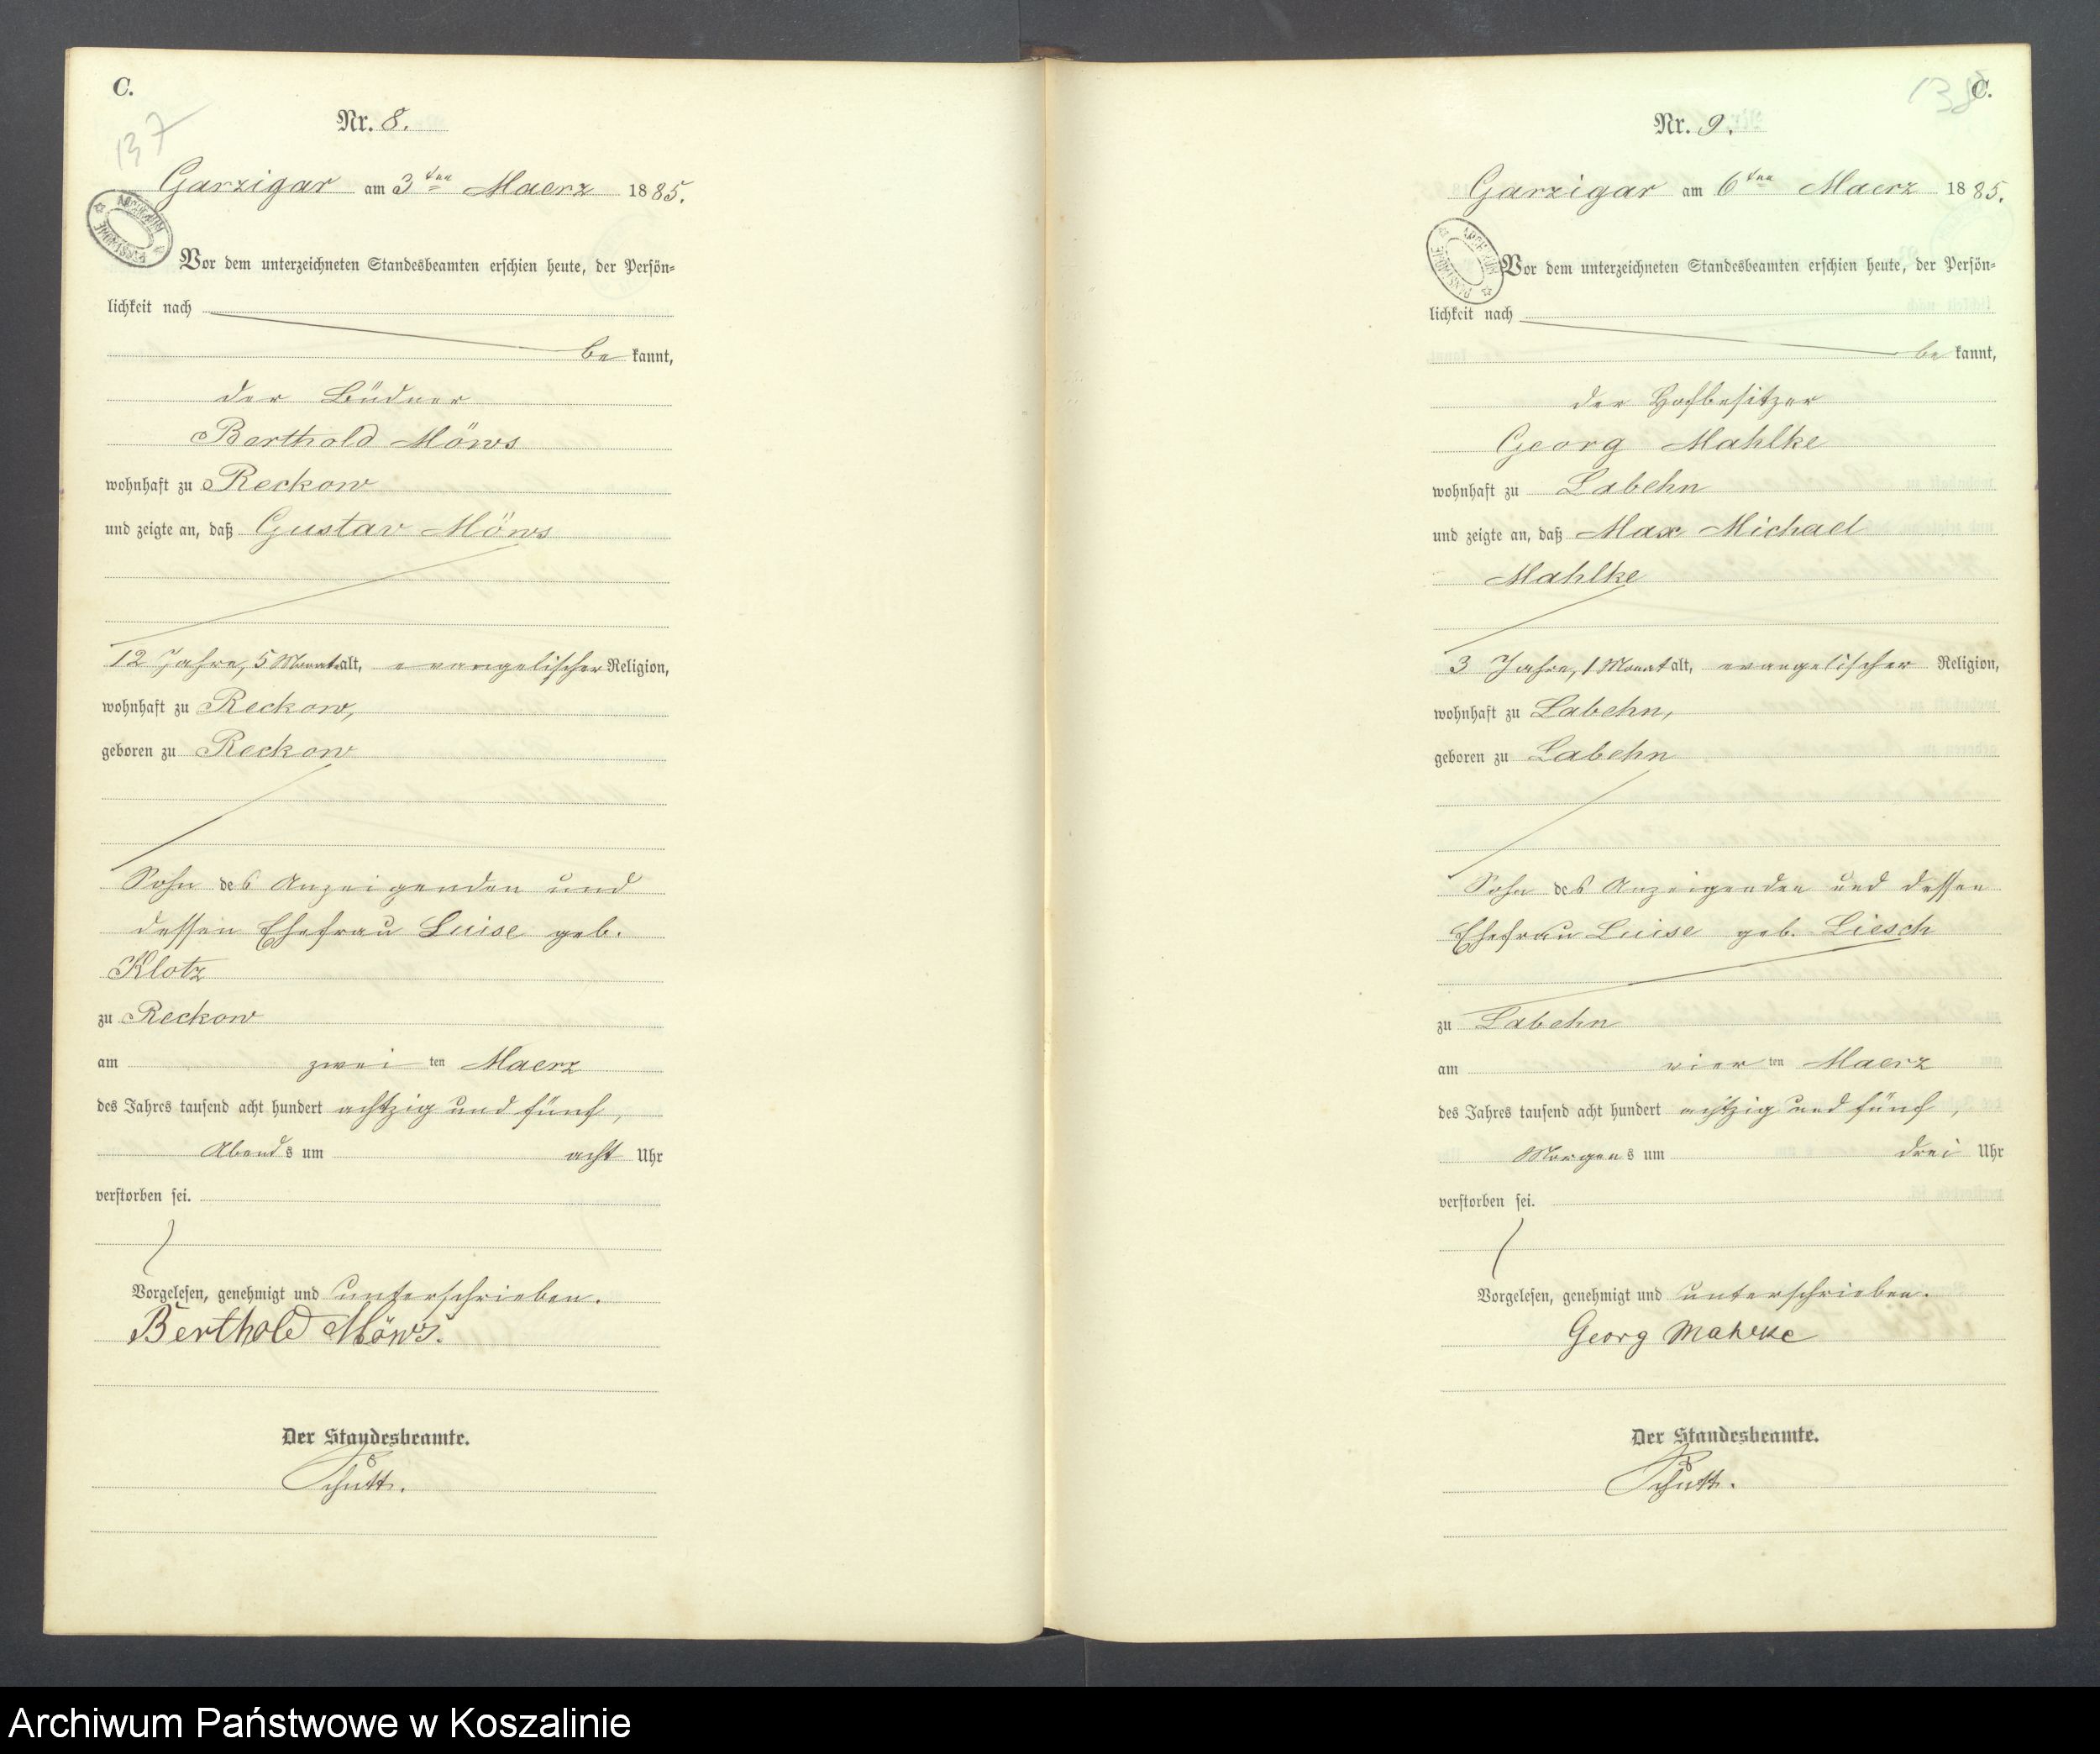 C.
137
Nr. 8.
Garzigar am 3ten Maerz 1885.
Vor dem unterzeichneten Standesbeamten erschien heute, der Persön-
lichkeit nach
be kannt,
der Büdner
Berthold Möws
wohnhaft zu Reckow
und zeigte an, daß Gustav Möws
12 Jahre, 5 Monat alt, evangelischer Religion,
wohnhaft zu Reckow,
geboren zu Reckow
Sohn des Anzeigenden und
dessen Ehefrau Luise geb.
Klotz
zu Reckow
am zwei ten Maerz
des Jahres tausend acht hundert achtzig und fünf,
Abends um acht Uhr
verstorben sei.
Vorgelesen, genehmigt und unterschrieben.
Berthold Möws.
Der Standesbeamte.
Schütt.
138
C.
Nr. 9.
Garzigar am 6ten Maerz 1885.
ARCHIWUM PAŃSTWOWE
Vor dem unterzeichneten Standesbeamten erschien heute, der Persön-
lichkeit nach
be kannt,
der Hofbesitzer
Georg Mahlke
wohnhaft zu Labehn
und zeigte an, daß Max Michael
Mahlke
3 Jahre, 1 Monat alt, evangelischer Religion,
wohnhaft zu Labehn,
geboren zu Labehn
Sohn des Anzeigenden und dessen
Ehefrau Luise geb. Liesch
zu Labehn
am vier ten Maerz
des Jahres tausend acht hundert achtzig und fünf,
Morgens um drei Uhr
verstorben sei.
Vorgelesen, genehmigt und unterschrieben.
Georg Mahlke
Der Standesbeamte.
Schütt.
Archiwum Państwowe w Koszalinie